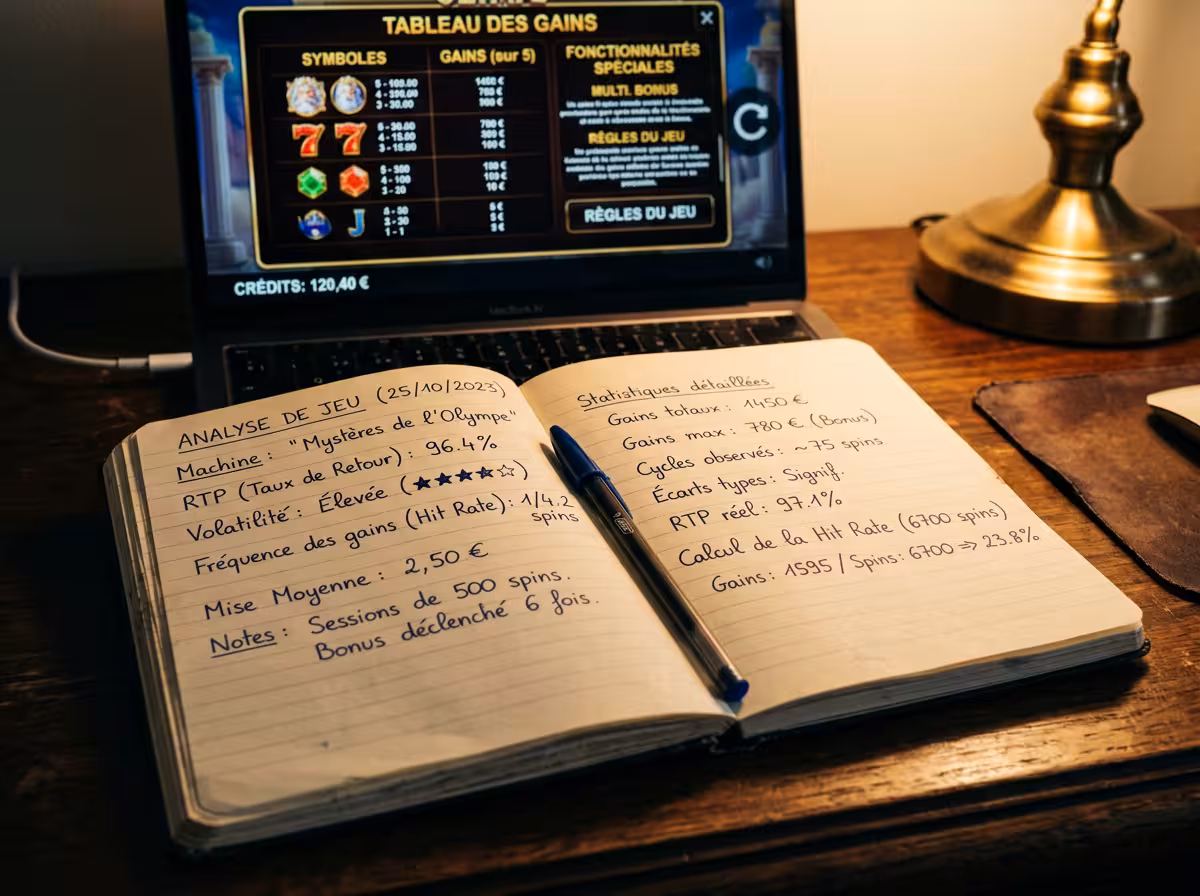 TABLEAU DES GAINS
SYMBOLES
GAINS (sur 5)
5 - 100.00
4 - 200.00
3 - 30.00
1450 €
700 €
900 €
7 7
5 - 30.00
4 - 15.00
3 - 15.00
700 €
300 €
100 €
5 - 300
4 - 100
3 - 20
100 €
100 €
10 €
J
3 - 30
1 - 1
FONCTIONNALITÉS
SPÉCIALES
MULTI. BONUS
RÈGLES DU JEU
RÈGLES DU JEU
CRÉDITS: 120,40 €
ANALYSE DE JEU (25/10/2023)
Machine : "Mystères de l'Olympe"
RTP (Taux de Retour) : 96.4%
Volatilité : Élevée (★★★★☆)
Fréquence des gains (Hit Rate) : 1/4.2
spins
Mise Moyenne : 2,50 €
Notes : Sessions de 500 spins.
Bonus déclenché 6 fois.
Statistiques détaillées
Gains totaux : 1450 €
Gains max : 780 € (Bonus)
Cycles observés : ~75 spins
Écarts types : Signif.
RTP réel : 97.1%
Calcul de la Hit Rate (6700 spins)
Gains : 1595 / Spins : 6700 => 23.8%